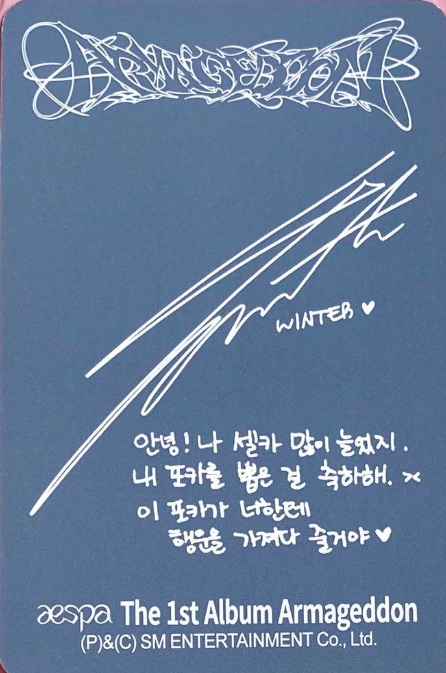 ARMAGEDDON
WINTER ♥
안녕! 나 셀카 많이 늘었지.
내 포카를 뽑은 걸 축하해. ><
이 포카가 너한테
행운을 가져다 줄거야 ♥
aespa The 1st Album Armageddon
(P)&(C) SM ENTERTAINMENT Co., Ltd.